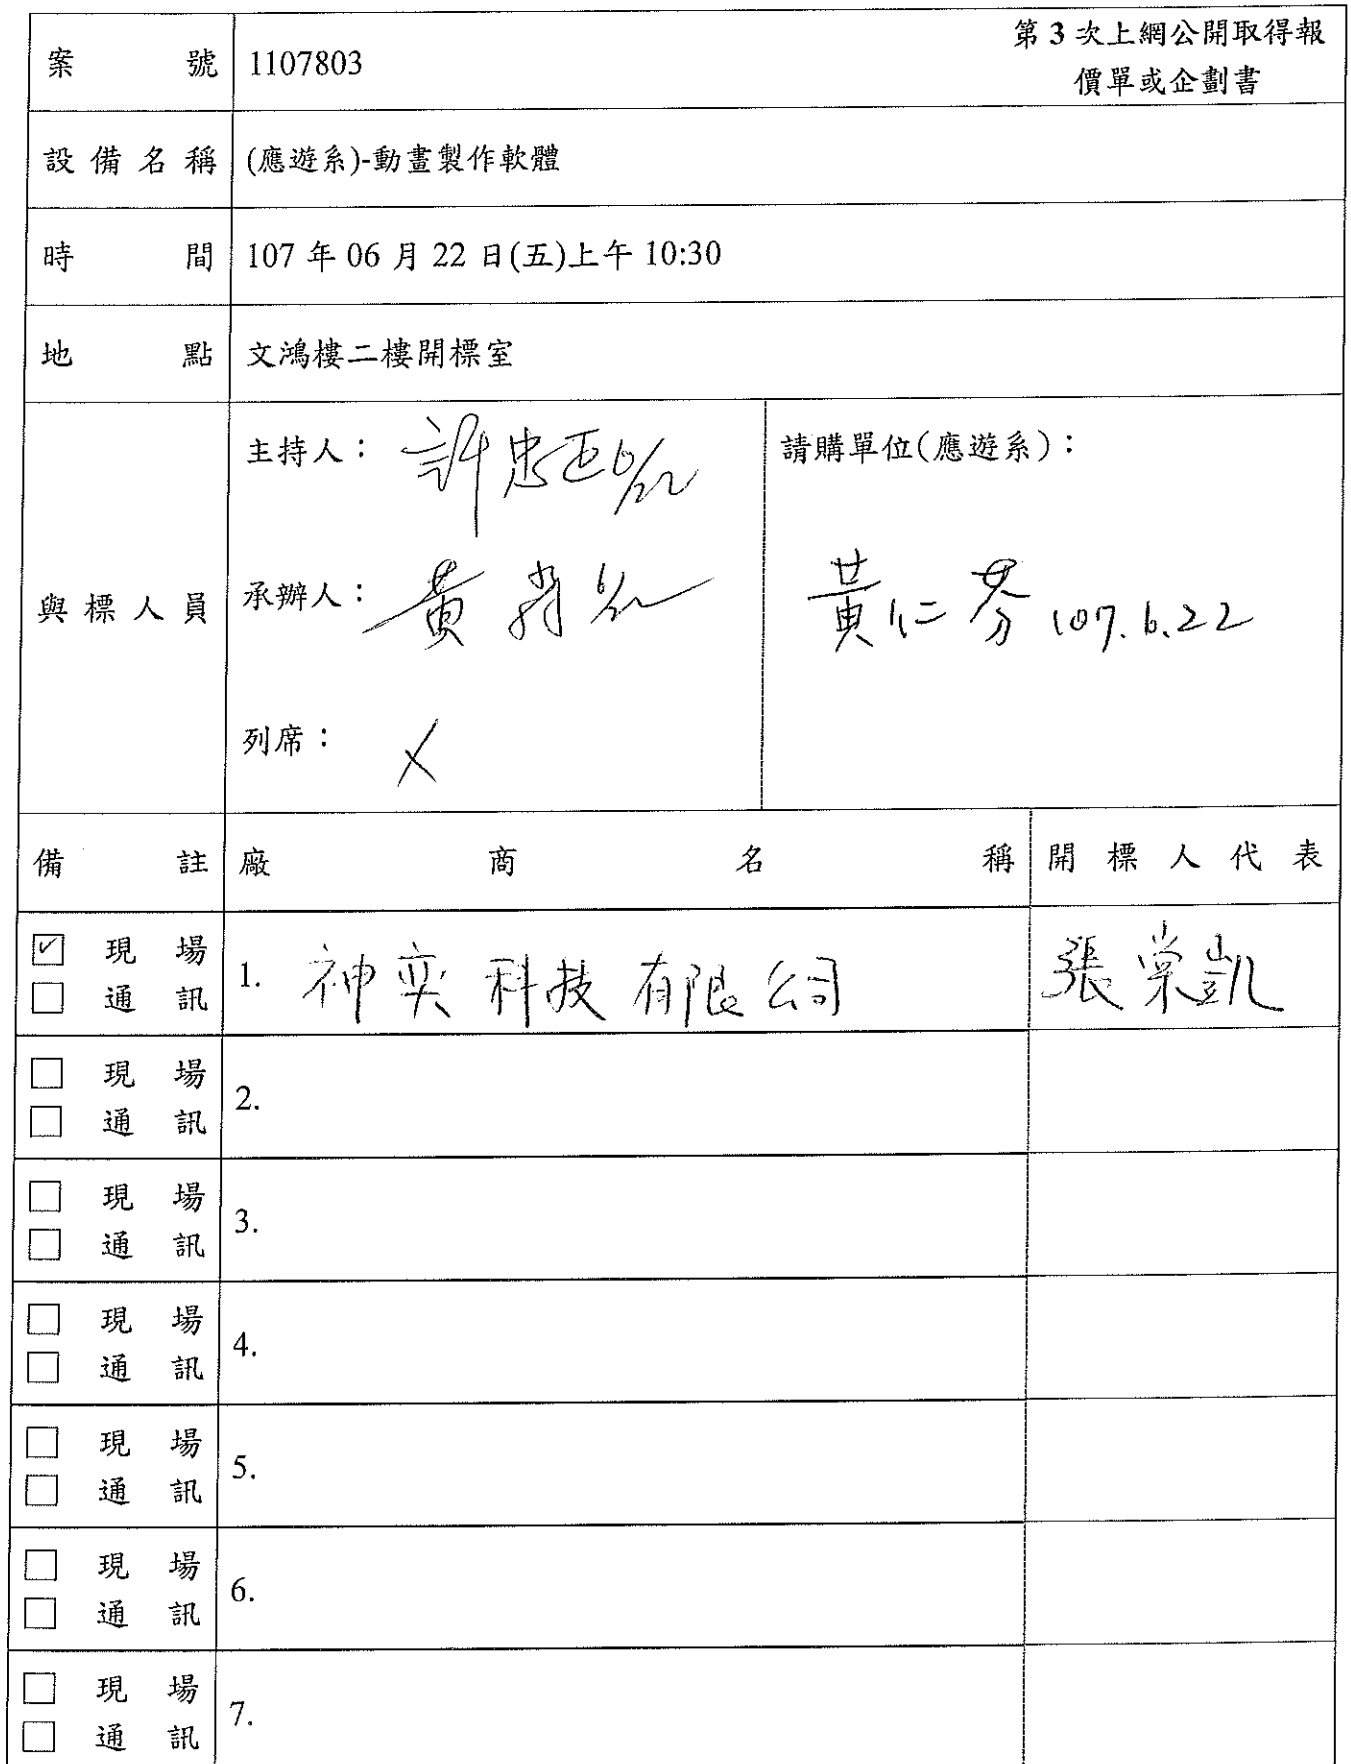 案號 1107803 第 3 次上網公開取得報
價單或企劃書
設備名稱 (應遊系)-動畫製作軟體
時間 107 年 06 月 22 日(五)上午 10:30
地點 文鴻樓二樓開標室
與標人員
主持人： 許忠 6/22
請購單位(應遊系)：
承辦人： 黃 6/22
黃仁芬 107.6.22
列席： X
備註 廠商名稱 開標人代表
現場
通訊
1. 神奕科技有限公司 張棠凱
現場
通訊
2.
現場
通訊
3.
現場
通訊
4.
現場
通訊
5.
現場
通訊
6.
現場
通訊
7.